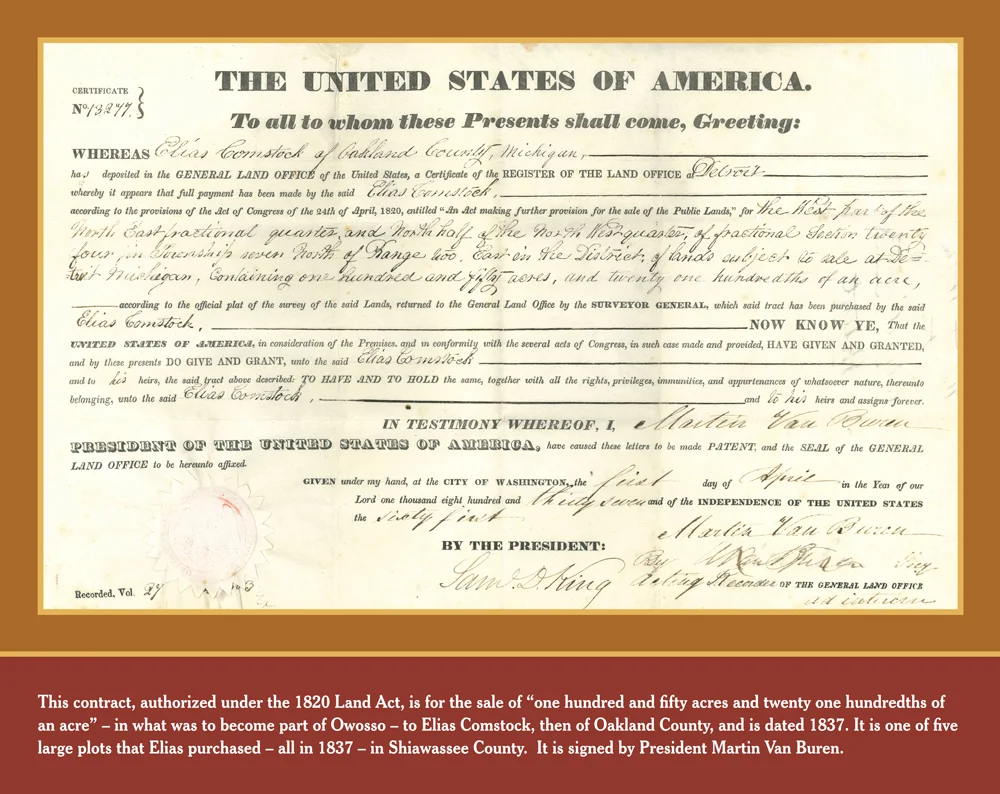 THE UNITED STATES OF AMERICA.
CERTIFICATE
No 13277.
To all to whom these Presents shall come, Greeting:
WHEREAS Elias Comstock of Oakland County, Michigan,
has deposited in the GENERAL LAND OFFICE of the United States, a Certificate of the REGISTER OF THE LAND OFFICE at Detroit
whereby it appears that full payment has been made by the said Elias Comstock,
according to the provisions of the Act of Congress of the 24th of April, 1820, entitled "An Act making further provision for the sale of the Public Lands," for the West part of the
North East fractional quarter, and North half of the North West quarter, of fractional Section twenty
four in Township seven North of Range two, East in the District of lands subject to sale at De=
troit Michigan, Containing one hundred and fifty acres, and twenty one hundredths of an acre,
according to the official plat of the survey of the said Lands, returned to the General Land Office by the SURVEYOR GENERAL, which said tract has been purchased by the said
Elias Comstock,
NOW KNOW YE, That the
UNITED STATES OF AMERICA, in consideration of the Premises, and in conformity with the several acts of Congress, in such case made and provided, HAVE GIVEN AND GRANTED,
and by these presents DO GIVE AND GRANT, unto the said Elias Comstock
and to his heirs, the said tract above described: TO HAVE AND TO HOLD the same, together with all the rights, privileges, immunities, and appurtenances of whatsoever nature, thereunto
belonging, unto the said Elias Comstock, and to his heirs and assigns forever.
IN TESTIMONY WHEREOF, I, Martin Van Buren
PRESIDENT OF THE UNITED STATES OF AMERICA, have caused these letters to be made PATENT, and the SEAL of the GENERAL
LAND OFFICE to be hereunto affixed.
GIVEN under my hand, at the CITY OF WASHINGTON, the first day of April in the Year of our
Lord one thousand eight hundred and thirty seven and of the INDEPENDENCE OF THE UNITED STATES
the sixty first
Martin Van Buren
BY THE PRESIDENT:
By
Saml. D. King Acting Recorder OF THE GENERAL LAND OFFICE
ad interim
Recorded, Vol. 27
This contract, authorized under the 1820 Land Act, is for the sale of "one hundred and fifty acres and twenty one hundredths of
an acre" – in what was to become part of Owosso – to Elias Comstock, then of Oakland County, and is dated 1837. It is one of five
large plots that Elias purchased – all in 1837 – in Shiawassee County. It is signed by President Martin Van Buren.